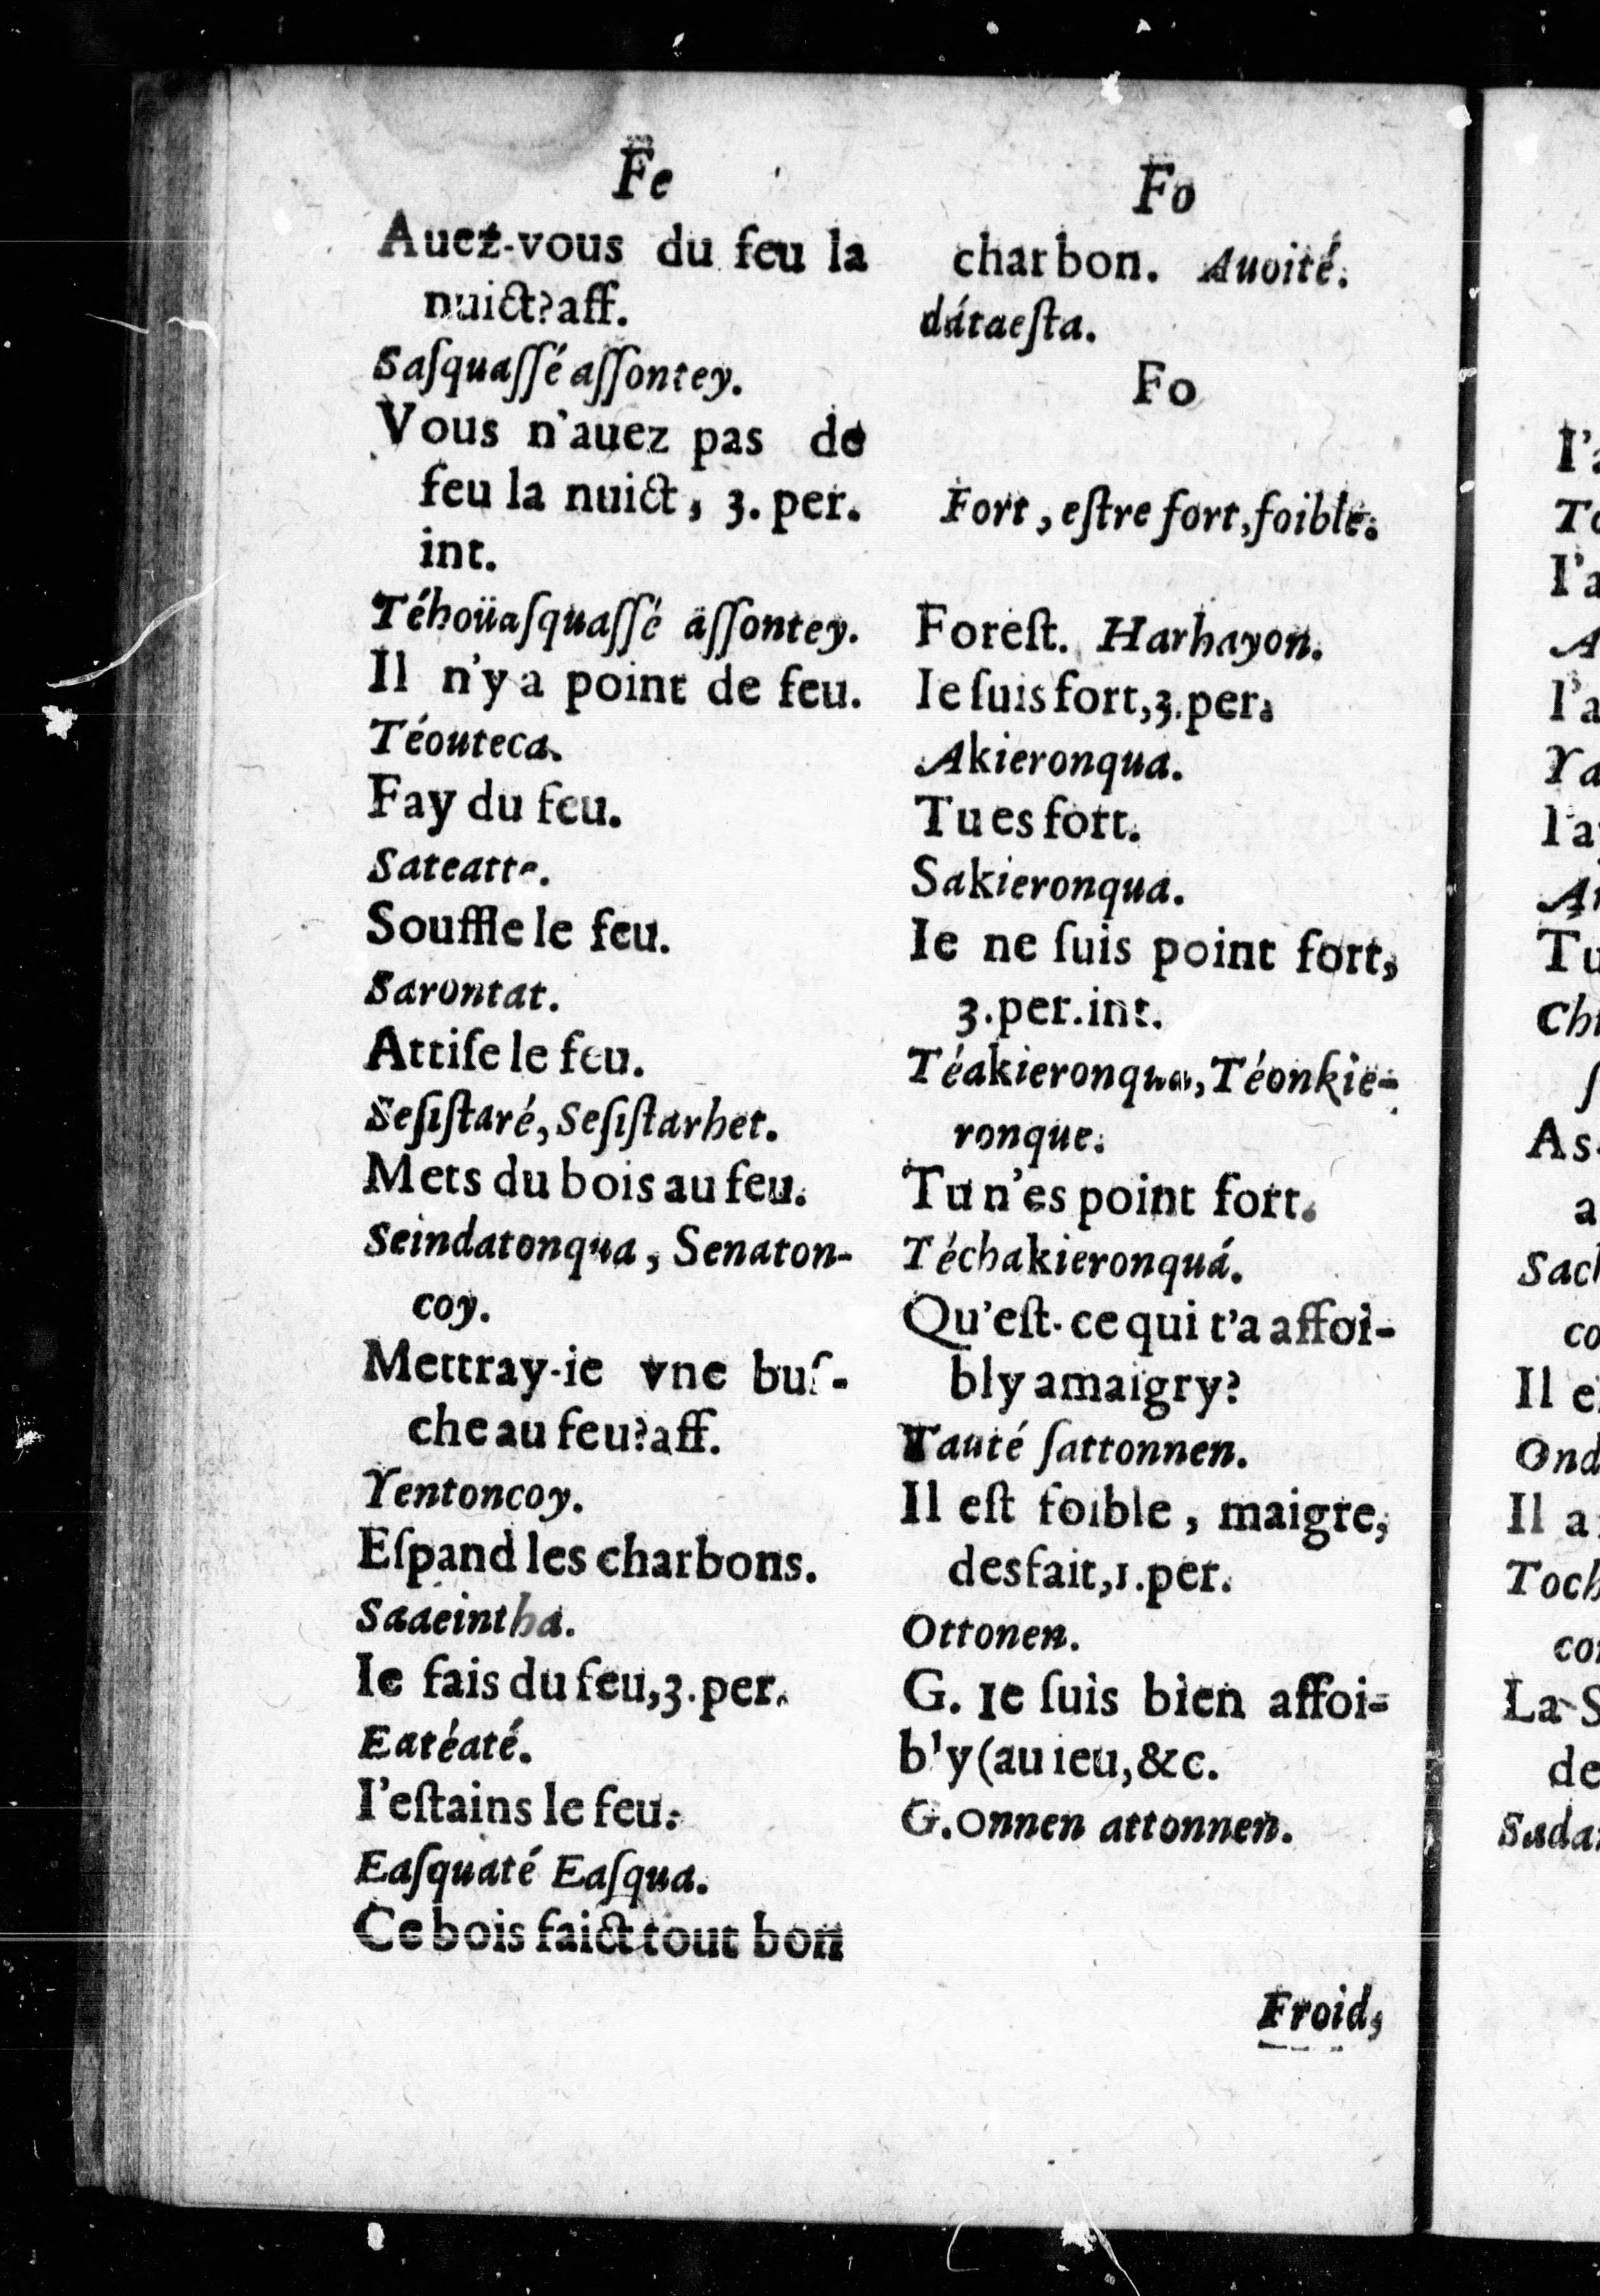 Fe
Auez-vous du feu la
nuict?aff.
Saſquaſſé aſſontey.
Vous n'auez pas de
feu la nuict, 3. per.
int.
Téhoüaſquaſſé aſſontey.
Il n'y a point de feu.
Téouteca.
Fay du feu.
Sateatte.
Souffle le feu.
Sarontat.
Attiſe le feu.
Seſiſtaré, Seſiſtarhet.
Mets du bois au feu.
Seindatonqua, Senaton-
coy.
Mettray-ie vne buſ-
che au feu?aff.
Yentoncoy.
Eſpand les charbons.
Saaeintha.
Ie fais du feu,3.per.
Eatéaté.
I'eſtains le feu.
Eaſquaté Eaſqua.
Ce bois faict tout bon
Fo
charbon. Auoité.
dátaeſta.
Fo
Fort, eſtre fort,foible.
Foreſt. Harhayon.
Ie ſuis fort,3.per.
Akieronqua.
Tu es fort.
Sakieronqua.
Ie ne ſuis point fort,
3.per.int.
Téakieronqua, Téonkie-
ronque.
Tu n'es point fort.
Téchakieronquá.
Qu'eſt-ce qui t'a affoi-
bly amaigry?
Tauté ſattonnen.
Il eſt foible, maigre,
desfait,1.per.
Ottonen.
G. Ie ſuis bien affoi-
bly (au ieu,&c.
G.Onnen attonnen.
Froid,
I'a
I'a
Tu
As-
a
co
Il e
Ond
Il a
Toch
La S
de